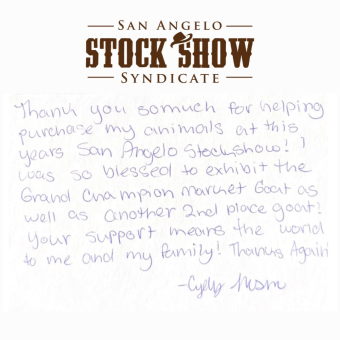 SAN ANGELO
STOCK SHOW
SYNDICATE
Thank you somuch for helping
purchase my animals at this
years San Angelo Stockshow! I
was so blessed to exhibit the
Grand Champion market Goat as
well as another 2nd place goat!
Your support means the world
to me and my family! Thanks Again